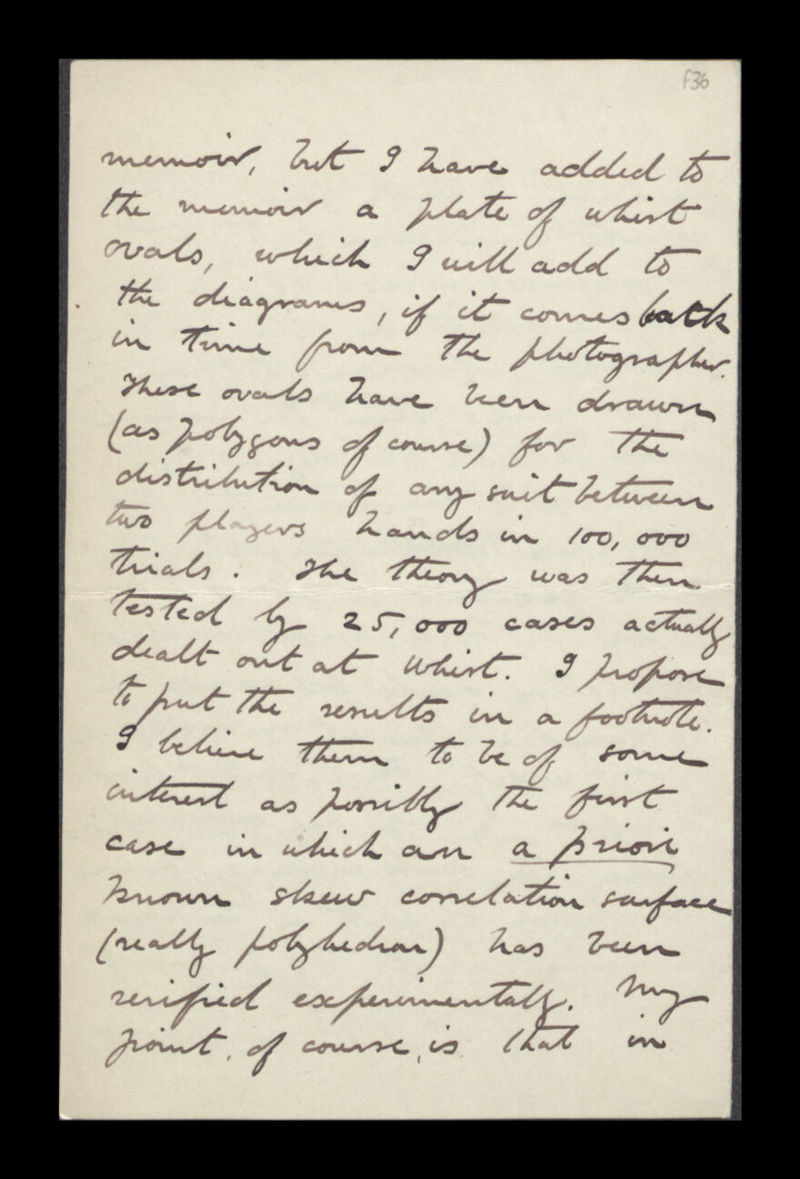 f36
memoir, but I have added to
the memoir a plate of whist
ovals, which I will add to
the diagrams, if it comes back
in time from the photographer.
These ovals have been drawn
(as polygons of course) for the
distribution of any suit between
two players hands in 100,000
trials. The theory was then
tested by 25,000 cases actually
dealt out at whist. I propose
to put the results in a footnote.
I believe them to be of some
interest as possibly the first
case in which an a priori
known skew correlation surface
(really polyhedron) has been
verified experimentally. My
point, of course, is that in